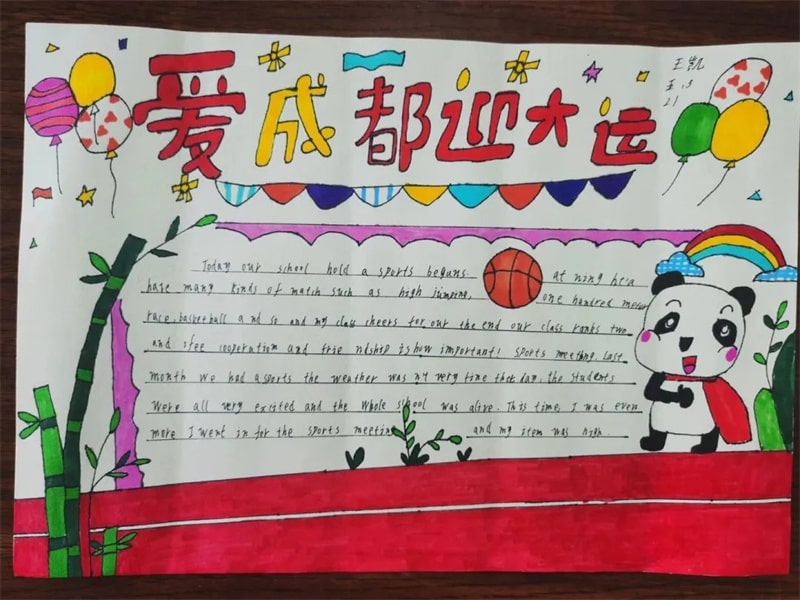 爱成都迎大运
王凯
五.3
21
Today our school hold a sports beguns. at ning he'a
have many kinds of match such as high jumping, one hundred merer
race, basketball and so and my class cheers for our the end our class ranks two
and ifee cooperution and frie ndship is how important! sports meeting. Last
month we had a sports the weather was ny very fine thek day. the students
were all very excited and the whole school was alive. This time, I was even
more I went in for the sports meeting and my item was high